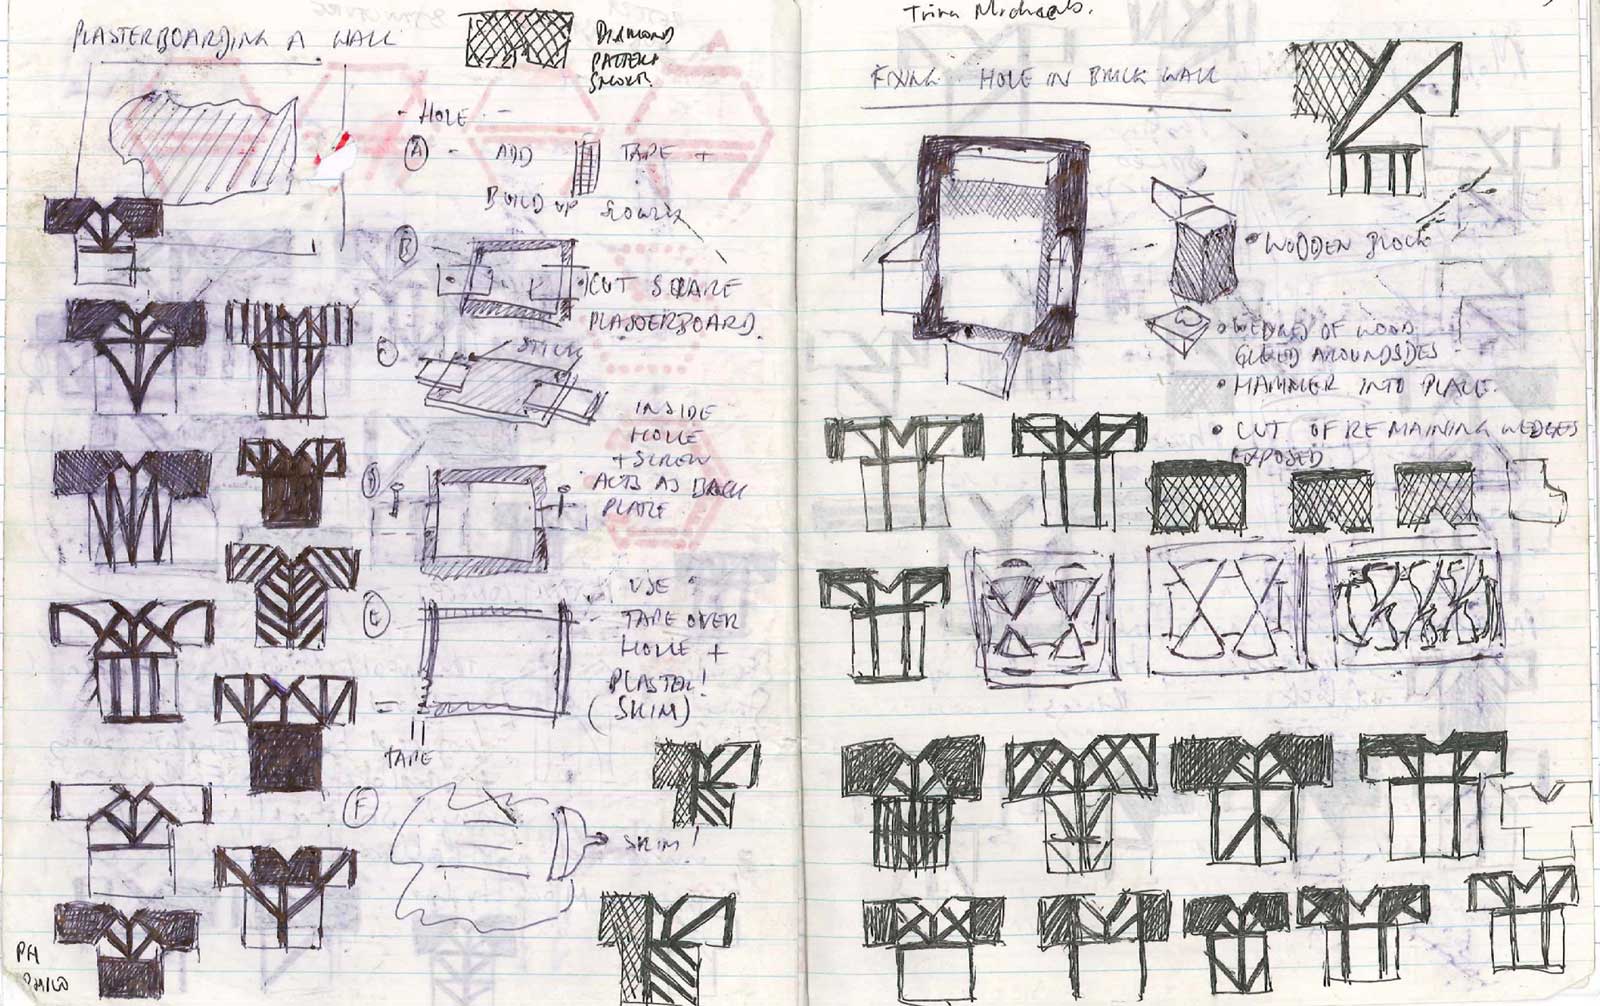 PLASTERBOARDING A WALL
DIAMOND
PATTERN
- HOLE -
A - ADD TAPE +
BUILD UP SLOWLY
B
CUT SQUARE
PLASTERBOARD.
STICK
INSIDE
HOLE
+ SCREW
ACTS AS BACK
PLATE
D
E
USE
TAPE OVER
HOLE +
PLASTER!
(SKIM)
= TAPE
F
SKIM!
PH
Trina Michaels.
FIXING HOLE IN BRICK WALL
• WOODEN BLOCK
W
• WEDGES OF WOOD
GLUED AROUND SIDES
• HAMMER INTO PLACE.
• CUT OF REMAINING WEDGES
EXPOSED